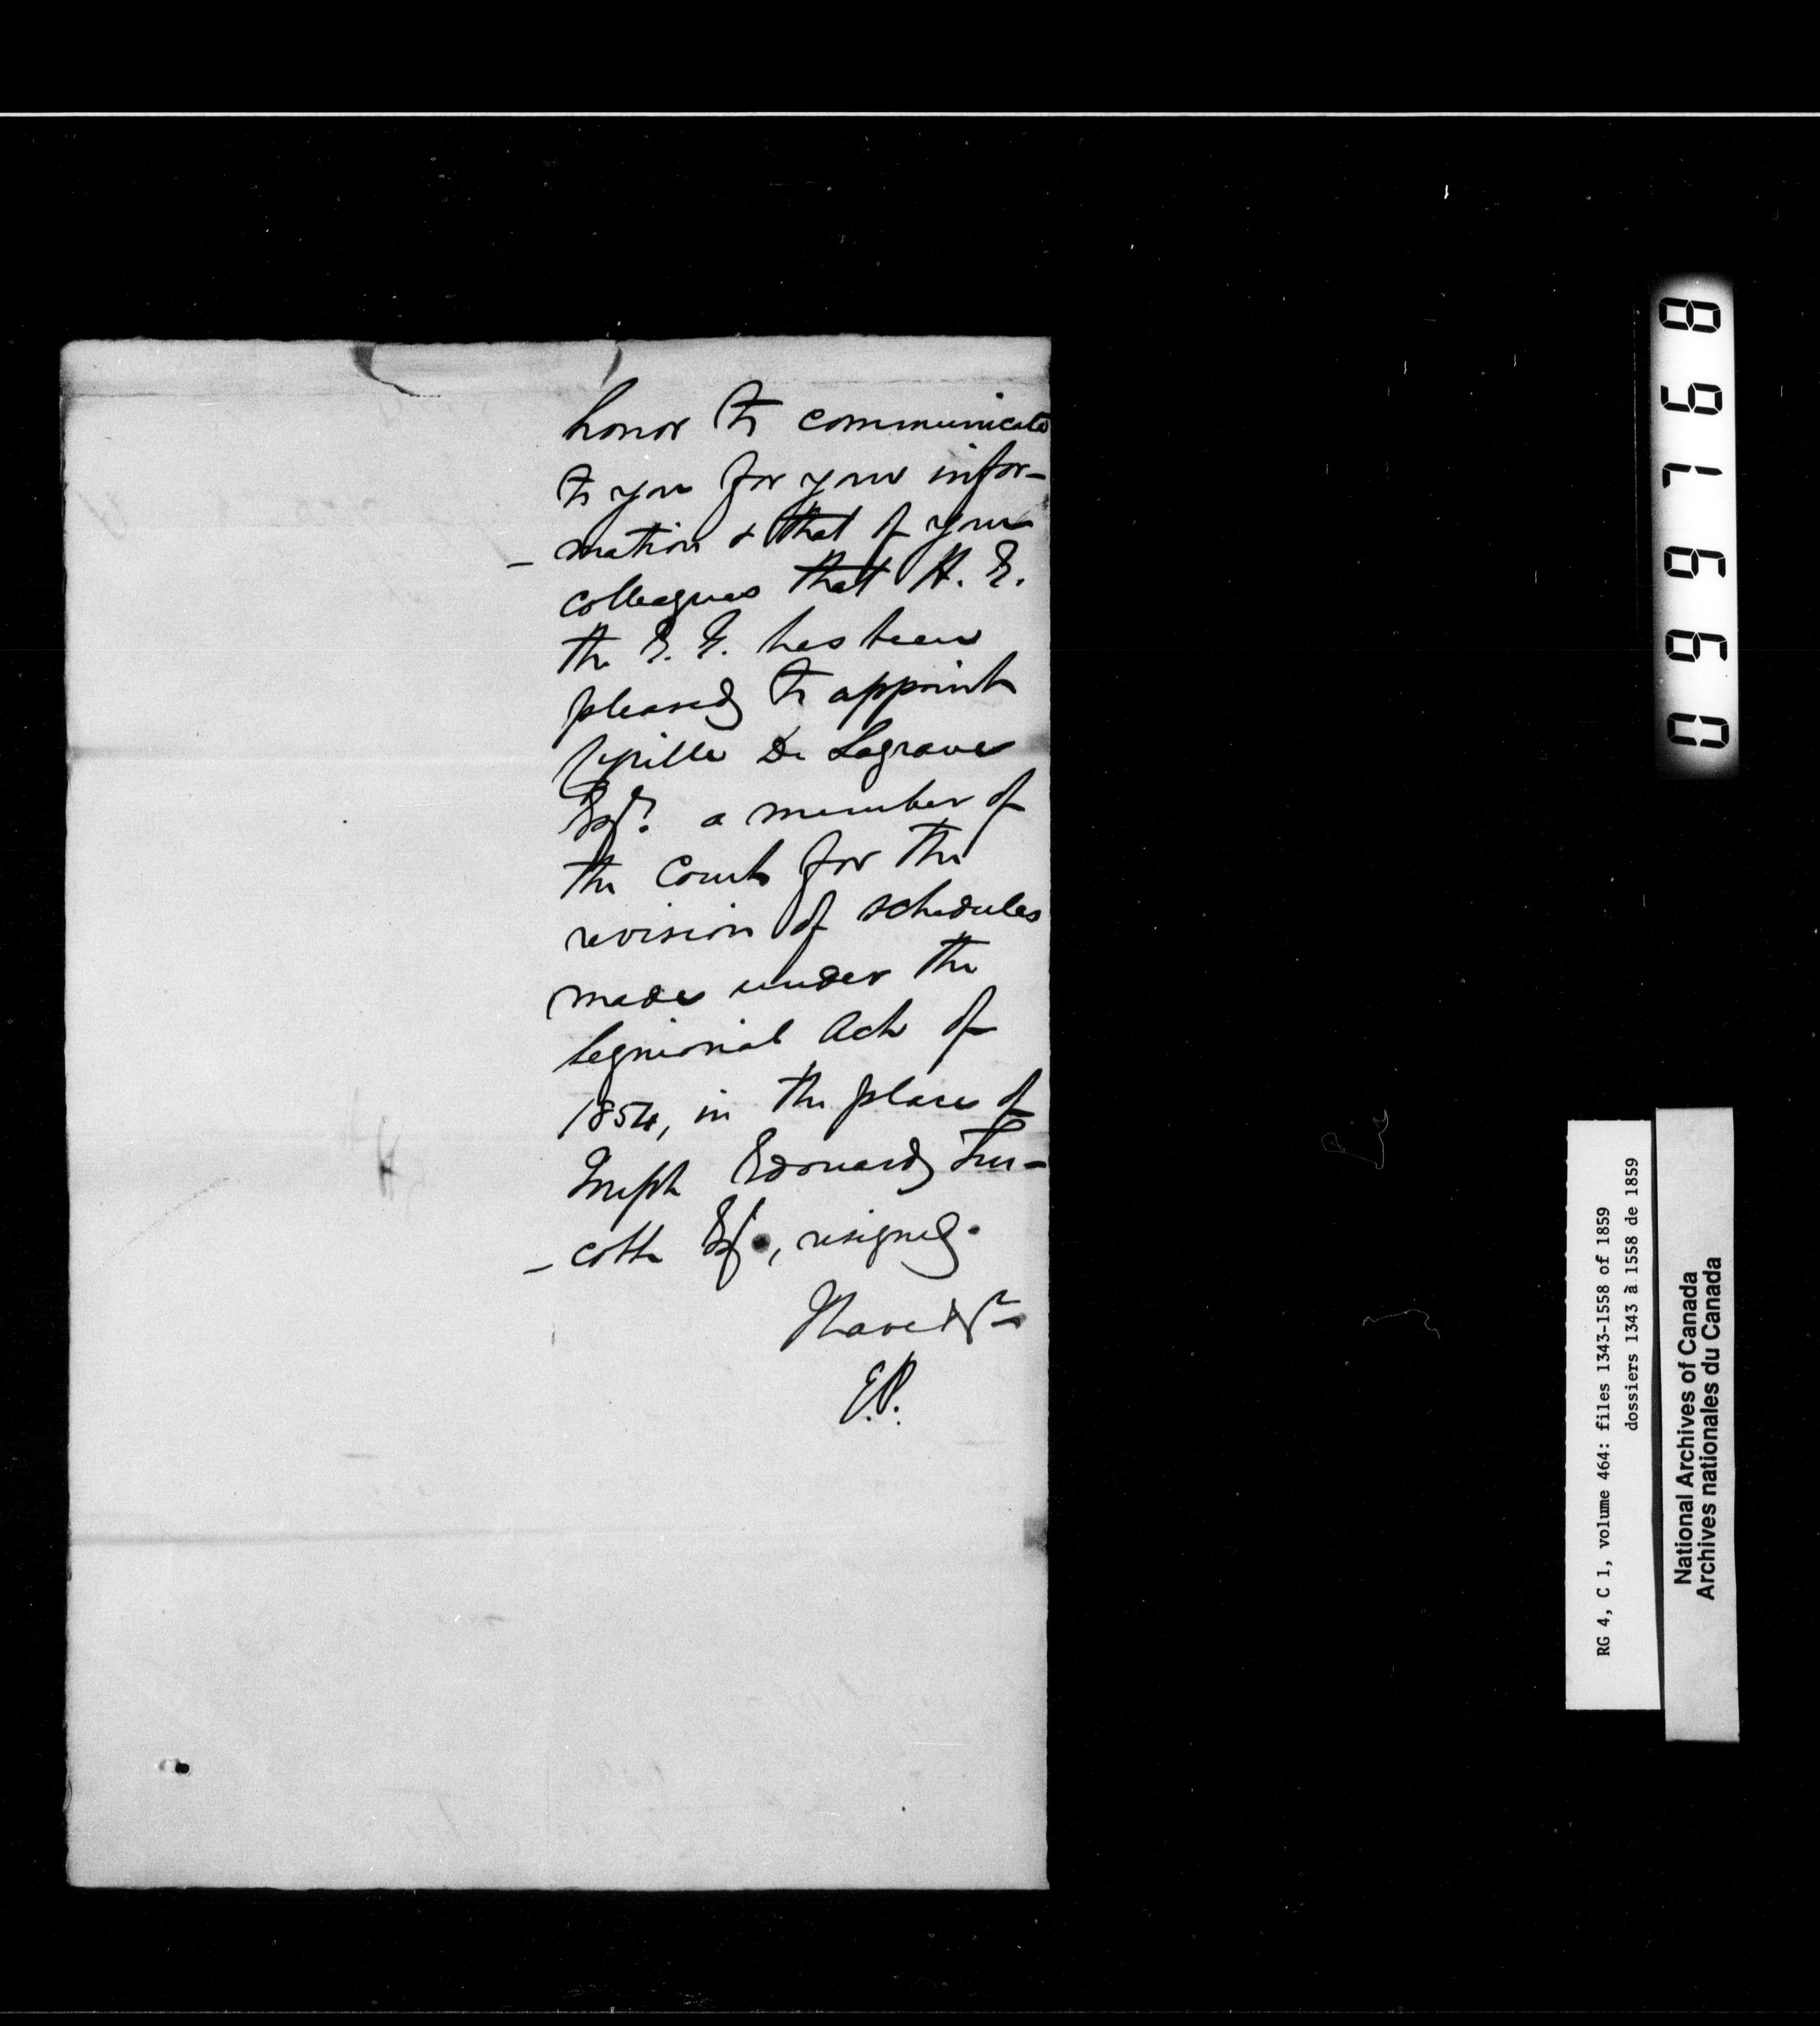 honor to communicate
to you for your infor-
- mation & that of your
colleagues that H. E.
the G. G. has been
pleased to appoint
Cyrille De Lagrave
Esq. a member of
the Court for the
revision of schedules
made under the
Seigniorial Act of
1854, in the place of
Joseph Edouard Tur-
- cotte Esq, resigned.
I have &c
E.P.
096798
RG 4, C 1, volume 464: files 1343-1558 of 1859
dossiers 1343 à 1558 de 1859
National Archives of Canada
Archives nationales du Canada